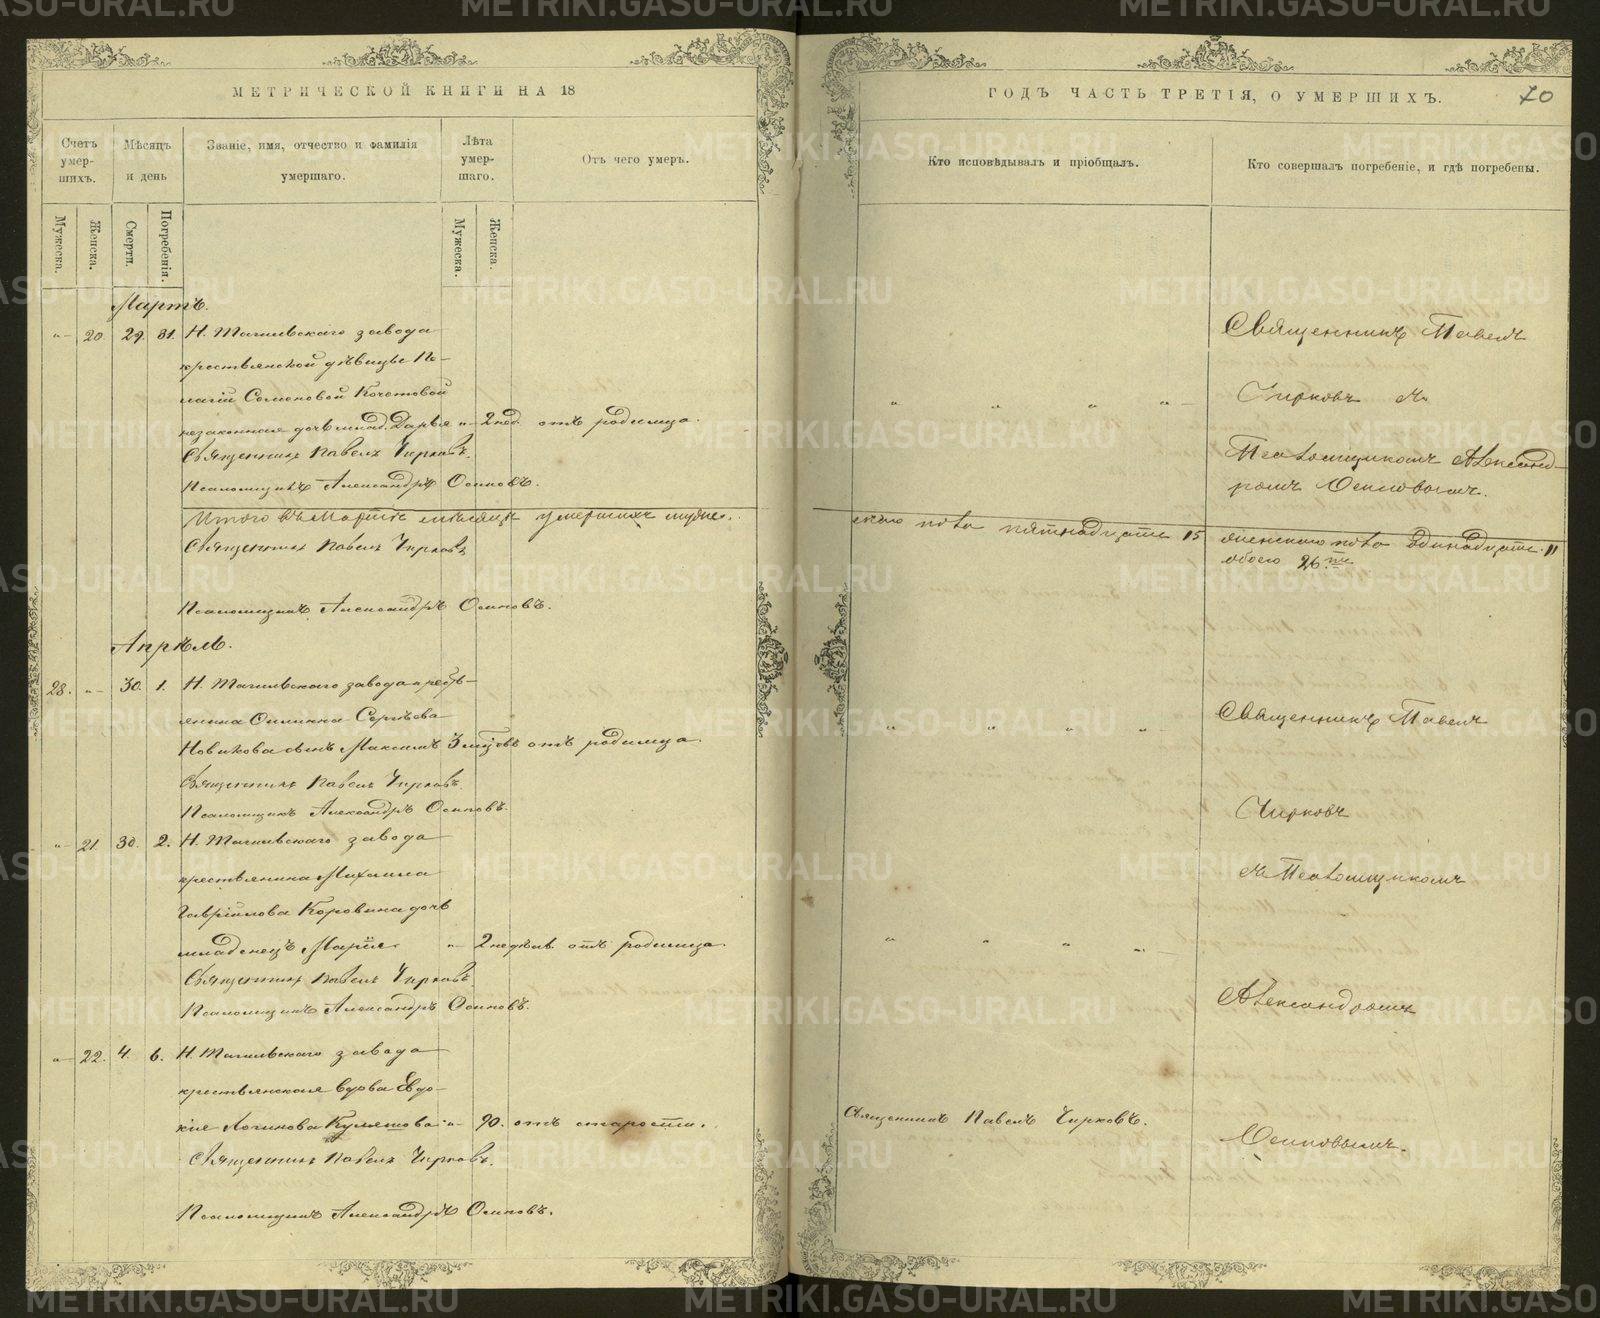 МЕТРИЧЕСКОЙ КНИГИ НА 18
Счетъ умер-шихъ.
Мѣсяцъ и день
Званіе, имя, отчество и фамилія умершаго.
Лѣта умер-шаго.
Отъ чего умеръ.
Мужеска.
Женска.
Смерти.
Погребенія.
Мужеска.
Женска.
Мартъ.
"- 20. 29. 31. Н. Тагильскаго завода
крестьянской дѣвицы Пе-
лагіи Семеновой Кочетовой
незаконная дочь млад. Дарья "- 2 нед. отъ родимца.
Священникъ Павелъ Чирковъ.
Псаломщикъ Александръ Осиповъ.
Итого въ Мартѣ мѣсяцѣ умершихъ муже-
Священникъ Павелъ Чирковъ
Псаломщикъ Александръ Осиповъ.
Апрѣль.
28. "- 30. 1. Н. Тагильскаго завода кресть-
янина Сергѣева
Новикова сынъ Максимъ 3 отъ родимца.
Священникъ Павелъ Чирковъ.
Псаломщикъ Александръ Осиповъ.
"- 21. 30. 2. Н. Тагильскаго завода
крестьянина Михаила
Гаврiилова Коровина дочь
младенецъ Марія "- 2 недѣль отъ родимца.
Священникъ Павелъ Чирковъ
Псаломщикъ Александръ Осиповъ.
"- 22. 4. 6. Н. Тагильскаго завода
крестьянская вдова Евдо-
кія Логинова Кулешова "- 90. отъ старости.
Священникъ Павелъ Чирковъ.
Псаломщикъ Александръ Осиповъ.
ГОДЪ ЧАСТЬ ТРЕТІЯ, О УМЕРШИХЪ.
70
Кто исповѣдывалъ и пріобщалъ.
Кто совершалъ погребеніе, и гдѣ погребены.
Священникъ Павелъ
" " " "- Чирковъ съ
Псаломщикомъ Александ-
ромъ Осиповымъ.
скаго пола пятнадцать 15 женскаго пола одинадцать 11
обоего 26.
" " " "- Священникъ Павелъ
Чирковъ
съ Псаломщикомъ
" " " "-
Александромъ
Священникъ Павелъ Чирковъ.
Осиповымъ.
METRIKI.GASO-URAL.RU